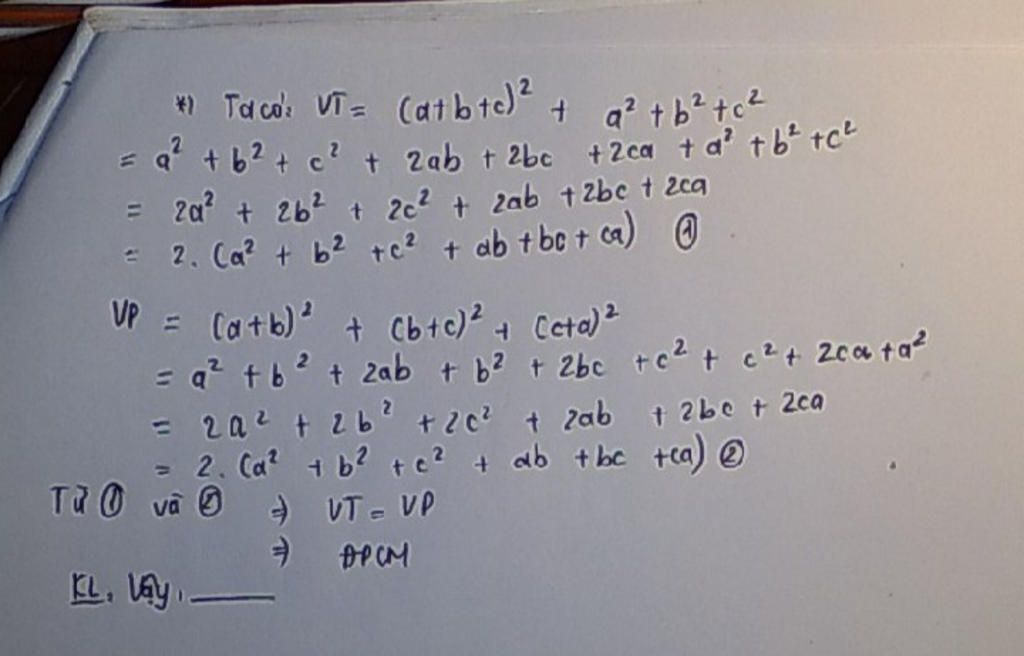 *) Ta có: VT = (a+b+c)² + a² + b² + c²
= a² + b² + c² + 2ab + 2bc + 2ca + a² + b² + c²
= 2a² + 2b² + 2c² + 2ab + 2bc + 2ca
= 2. (a² + b² + c² + ab + bc + ca) ①
VP = (a+b)² + (b+c)² + (c+a)²
= a² + b² + 2ab + b² + 2bc + c² + c² + 2ca + a²
= 2a² + 2b² + 2c² + 2ab + 2bc + 2ca
= 2. (a² + b² + c² + ab + bc + ca) ②
Từ ① và ② ⇒ VT = VP
⇒ ĐPCM
KL: Vậy.